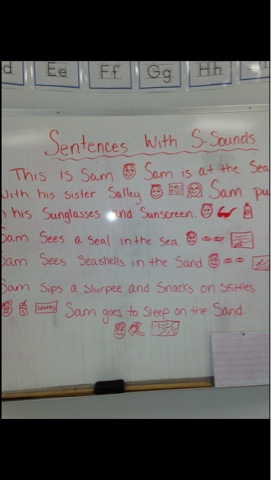 d Ee Ff Gg Hh
Sentences With S-Sounds
This is Sam Sam is at the Sea
With his sister Salley Sam pu
n his Sunglasses and Sunscreen.
Sam Sees a Seal in the Sea.
Sam Sees Seashells in the Sand
Sam Sips a Slurpee and Snacks on Skittles
Sam goes to Sleep on the Sand.